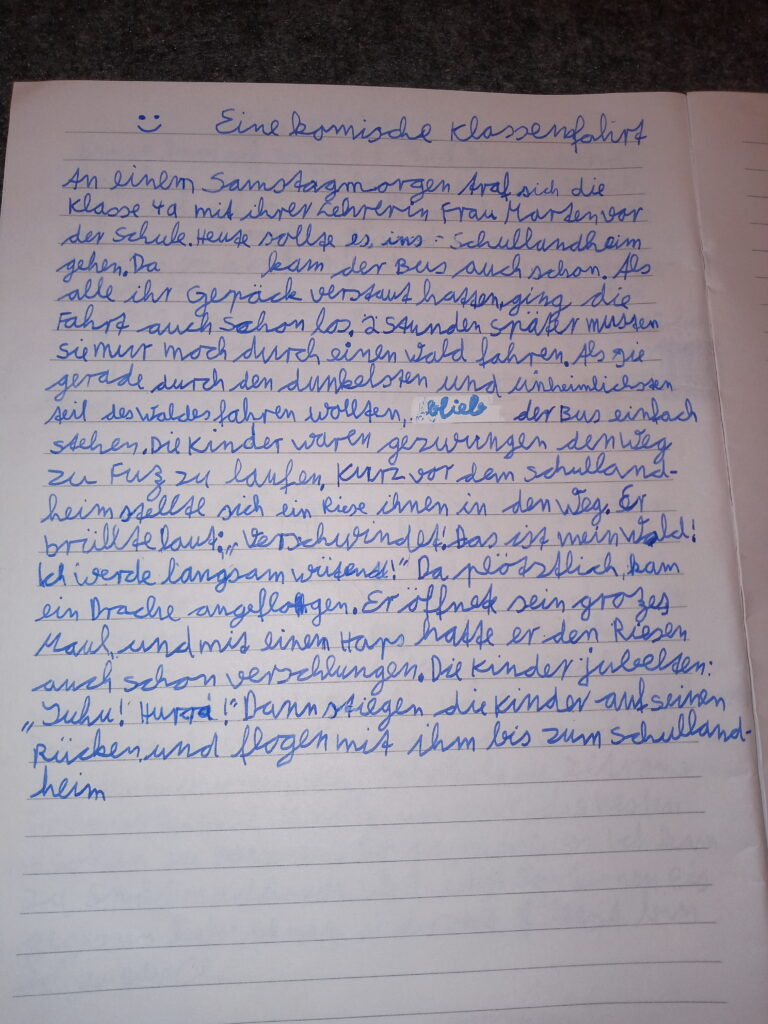 Eine komische Klassenfahrt
An einem Samstagmorgen traf sich die
Klasse 4a mit ihrer Lehrerin Frau Marten vor
der Schule. Heute sollte es ins - Schullandheim
gehen. Da kam der Bus auch schon. Als
alle ihr Gepäck verstaut hatten, ging die
Fahrt auch schon los. 2 Stunden später mussen
sie nur noch durch einen Wald fahren. Als sie
gerade durch den dunkelsten und unheimlichsten
teil des Waldes fahren wollten, blieb der Bus einfach
stehen. Die Kinder waren gezwungen den Weg
zu Fuß zu laufen. Kurz vor dem Schulland-
heim stellte sich ein Riese ihnen in den Weg. Er
brüllte laut: „Verschwindet! Das ist mein Wald!
Ich werde langsam wütend!" Da plötztlich kam
ein Drache angeflogen. Er öffnete sein großes
Maul, und mit einem Haps hatte er den Riesen
auch schon verschlungen. Die Kinder jubelten:
„Juhu! Hurra!" Dann stiegen die Kinder auf seinen
Rücken und flogen mit ihm bis zum Schulland-
heim